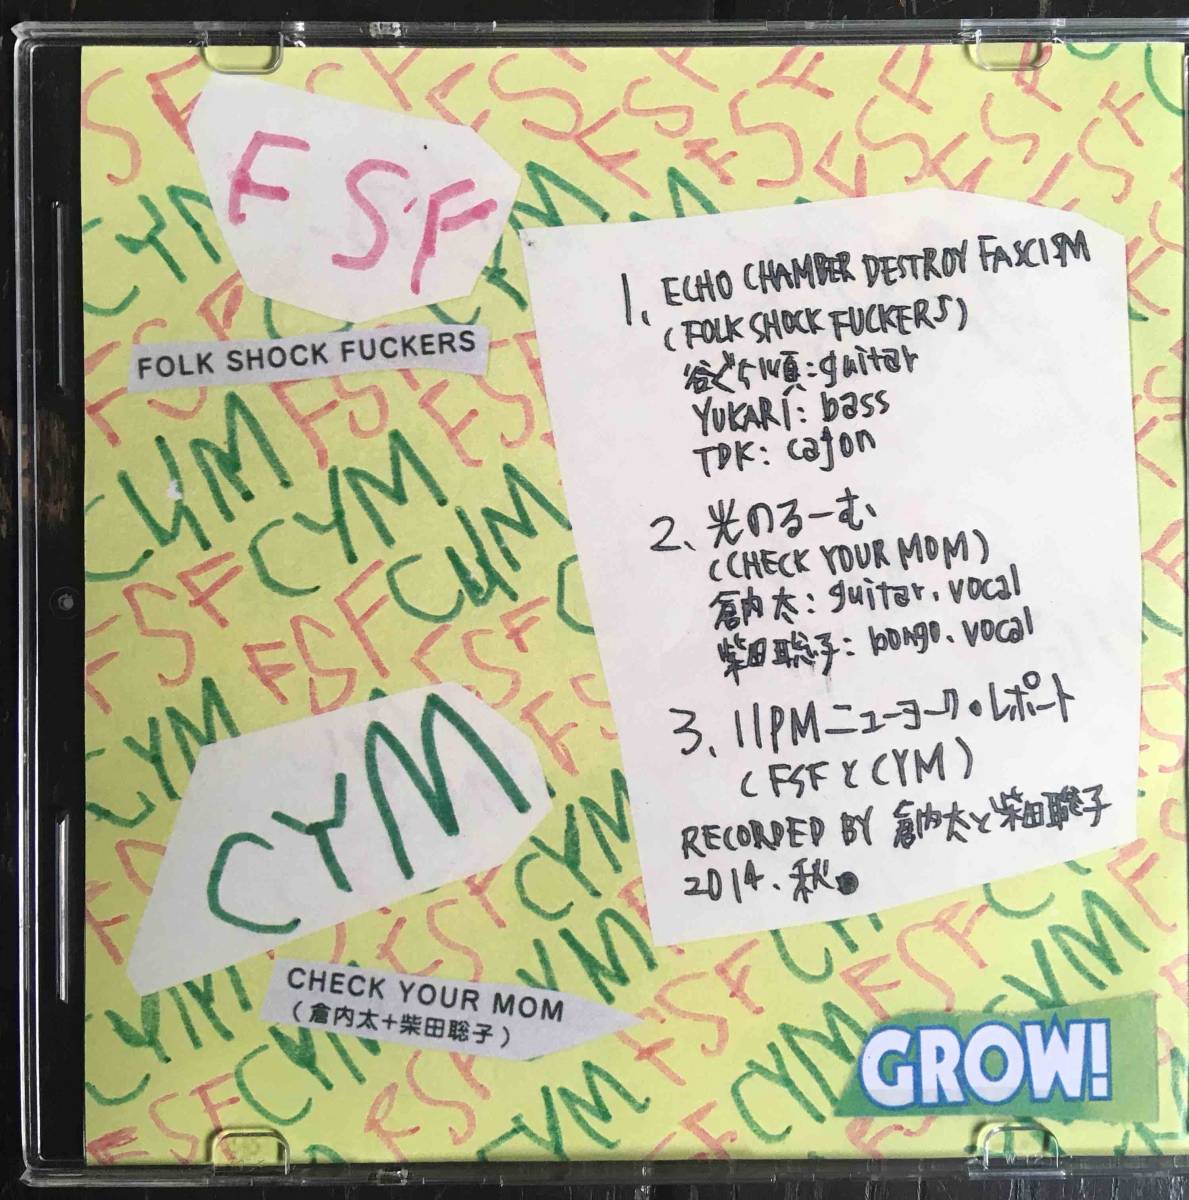 FSF
FOLK SHOCK FUCKERS
1. ECHO CHAMBER DESTROY FASCISM
(FOLK SHOCK FUCKERS)
谷ぐち順:guitar
YUKARI: bass
TDK: cajon
2、光のるーむ
(CHECK YOUR MOM)
倉内太:guitar、vocal
柴田聡子:bongo、vocal
3、11PMニューヨーク・レポート
(FSFとCYM)
RECORDED BY 倉内太と柴田聡子
2014、秋。
CYM
CHECK YOUR MOM
(倉内太+柴田聡子)
GROW!